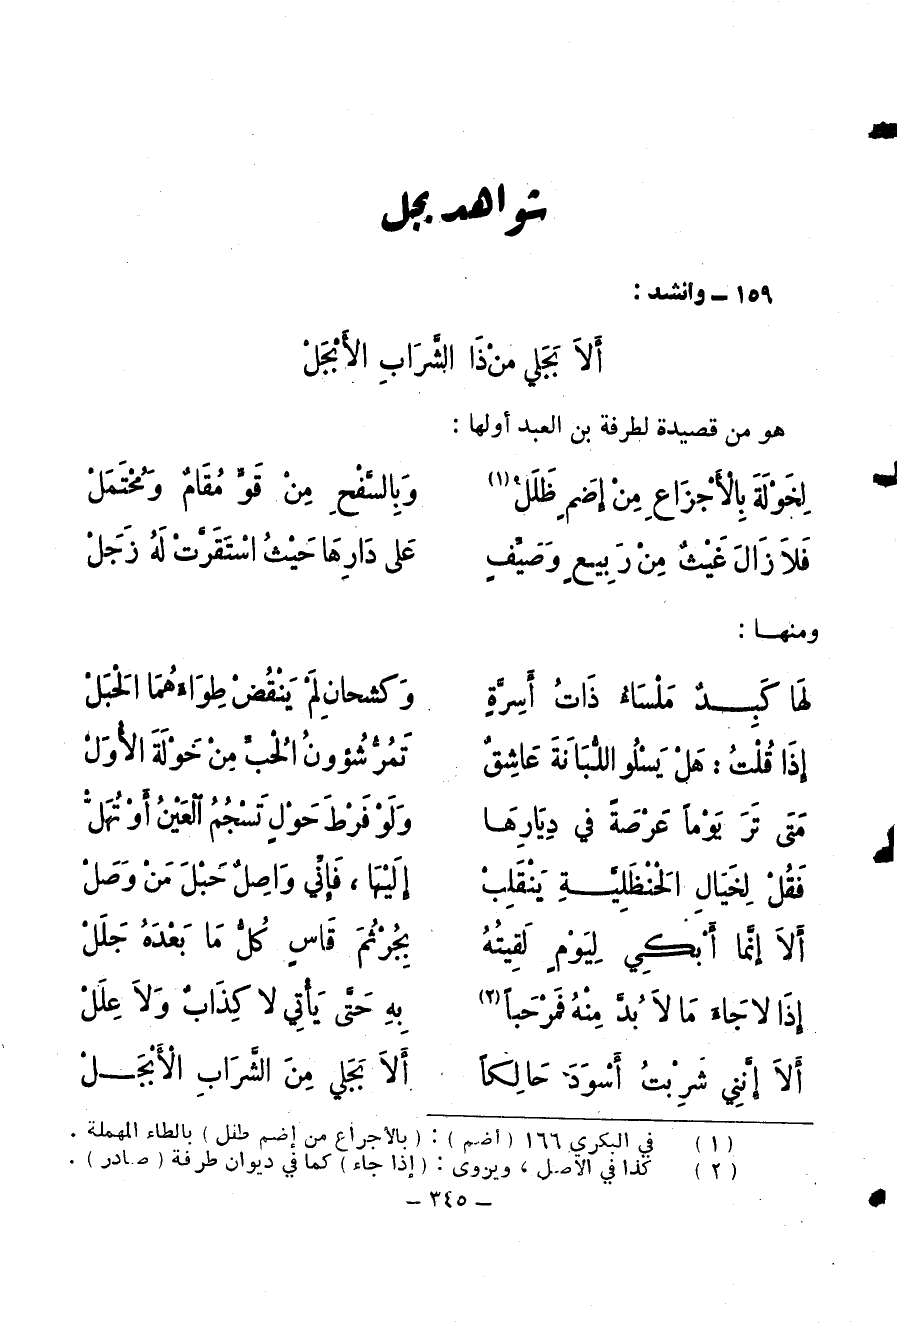 شواهد بجل
١٥٩ – وانشد :
أَلاَ بَجَلي من ذَا الشَّرَابِ الأَبْجَلْ
هو من قصيدة لطرفة بن العبد أولها :
لِخَوْلَةَ بِالْأَجْزَاعِ مِنْ إِضَمٍ ظَلَلْ (١) وَبِالسَّفْحِ مِنْ قَوٍّ مُقَامٌ وَمُحْتَمَلْ
فَلاَ زَالَ غَيْثٌ مِنْ رَبِيعٍ وَصَيِّفٍ عَلى دَارِهَا حَيْثُ اسْتَقَرَّتْ لَهُ زَجَلْ
ومنهـا :
لَهَا كَبِـدٌ مَلْسَاءُ ذَاتُ أَسِرَّةٍ وَكشحانِ لَمْ يَنْقُضْ طِوَاءَهُمَا الحَبَلْ
إِذَا قُلْتُ : هَلْ يَسْلُو اللُّبَانَةَ عَاشِقٌ تَمُرُّ شُؤونُ الحُبِّ مِنْ خَوْلَةَ الأُوَلْ
مَتَى تَرَ يَوْماً عَرْصَةً في دِيَارِهَا وَلَوْ فَرْطَ حَوْلٍ تَسْجُمُ العَيْنُ أَوْ تُهَلْ
فَقُلْ لِخَيَالِ الحَنْظَلِيَّـةِ يَنْقَلِبْ إِلَيْهَا ، فَإِنِّي وَاصِلٌ حَبْلَ مَنْ وَصَلْ
أَلاَ إِنَّمَا أَبْكِي لِيَوْمٍ لَقِيتُهُ بِجُرْثُمَ قَاسٍ كُلُّ مَا بَعْدَهُ جَلَلْ
إِذَا لا جَاءَ مَا لاَ بُدَّ مِنْهُ فَمَرْحَباً (٢) بِهِ حَتَّى يَأْتِي لا كِذَابٌ وَلاَ عِلَلْ
أَلاَ إِنَّنِي شَرِبْتُ أَسْوَدَ حَالِكاً أَلاَ بَجَلي مِنَ الشَّرَابِ الأَبْجَـلْ
(١) في البكري ١٦٦ ( أضم ) : ( بالأجراع من إضم طلل ) بالطاء المهملة .
(٢) كذا في الأصل ، ويروى : ( إذا جاء ) كما في ديوان طرفة ( صادر ) .
– ٣٤٥ –